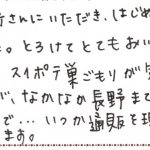 行さんにいただき、はじめ
た。とろけてとてもおい
スイポテ巣ごもりが
が、なかなか長野まで
で…いつか通販を
ます。